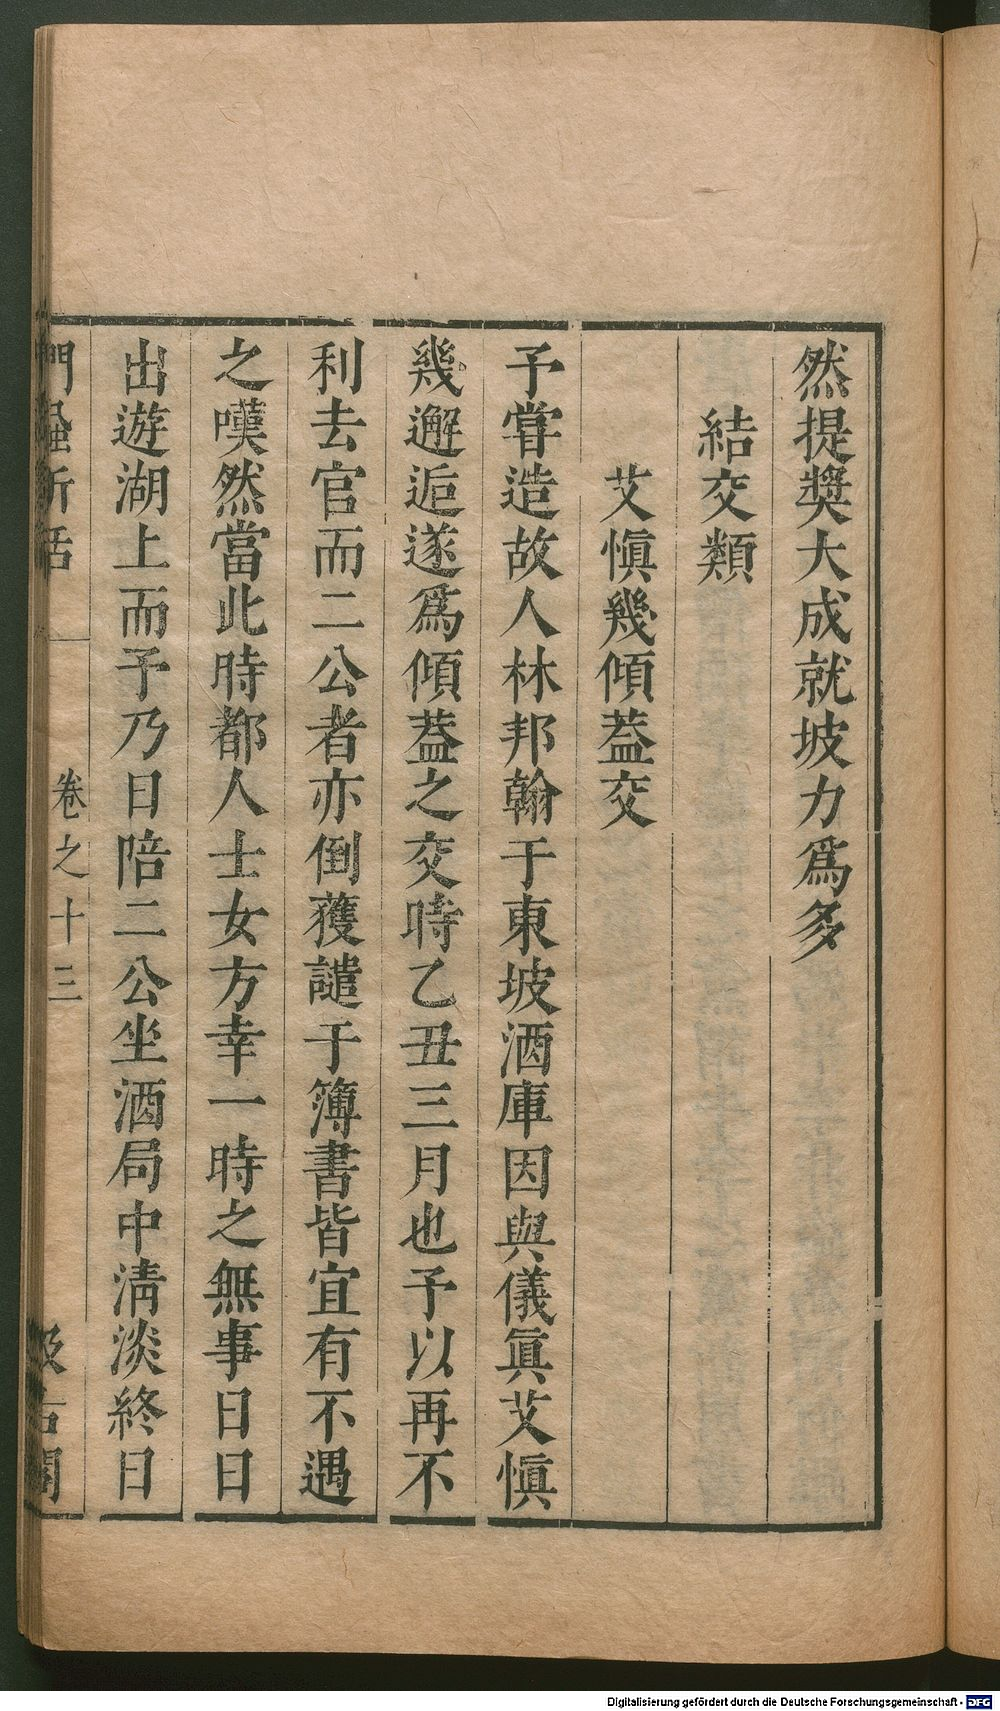 然提奬大成就坡力爲多
結交類
艾愼幾傾蓋交
予嘗造故人林邦翰于東坡酒庫因與儀眞艾愼
幾邂逅遂爲傾蓋之交時乙丑三月也予以再不
利去官而二公者亦倒獲譴于簿書皆宜有不遇
之嘆然當此時都人士女方幸一時之無事日日
出遊湖上而予乃日陪二公坐酒局中清淡終日
門蝨新話 卷之十三 汲古閣
Digitalisierung gefördert durch die Deutsche Forschungsgemeinschaft - DFG